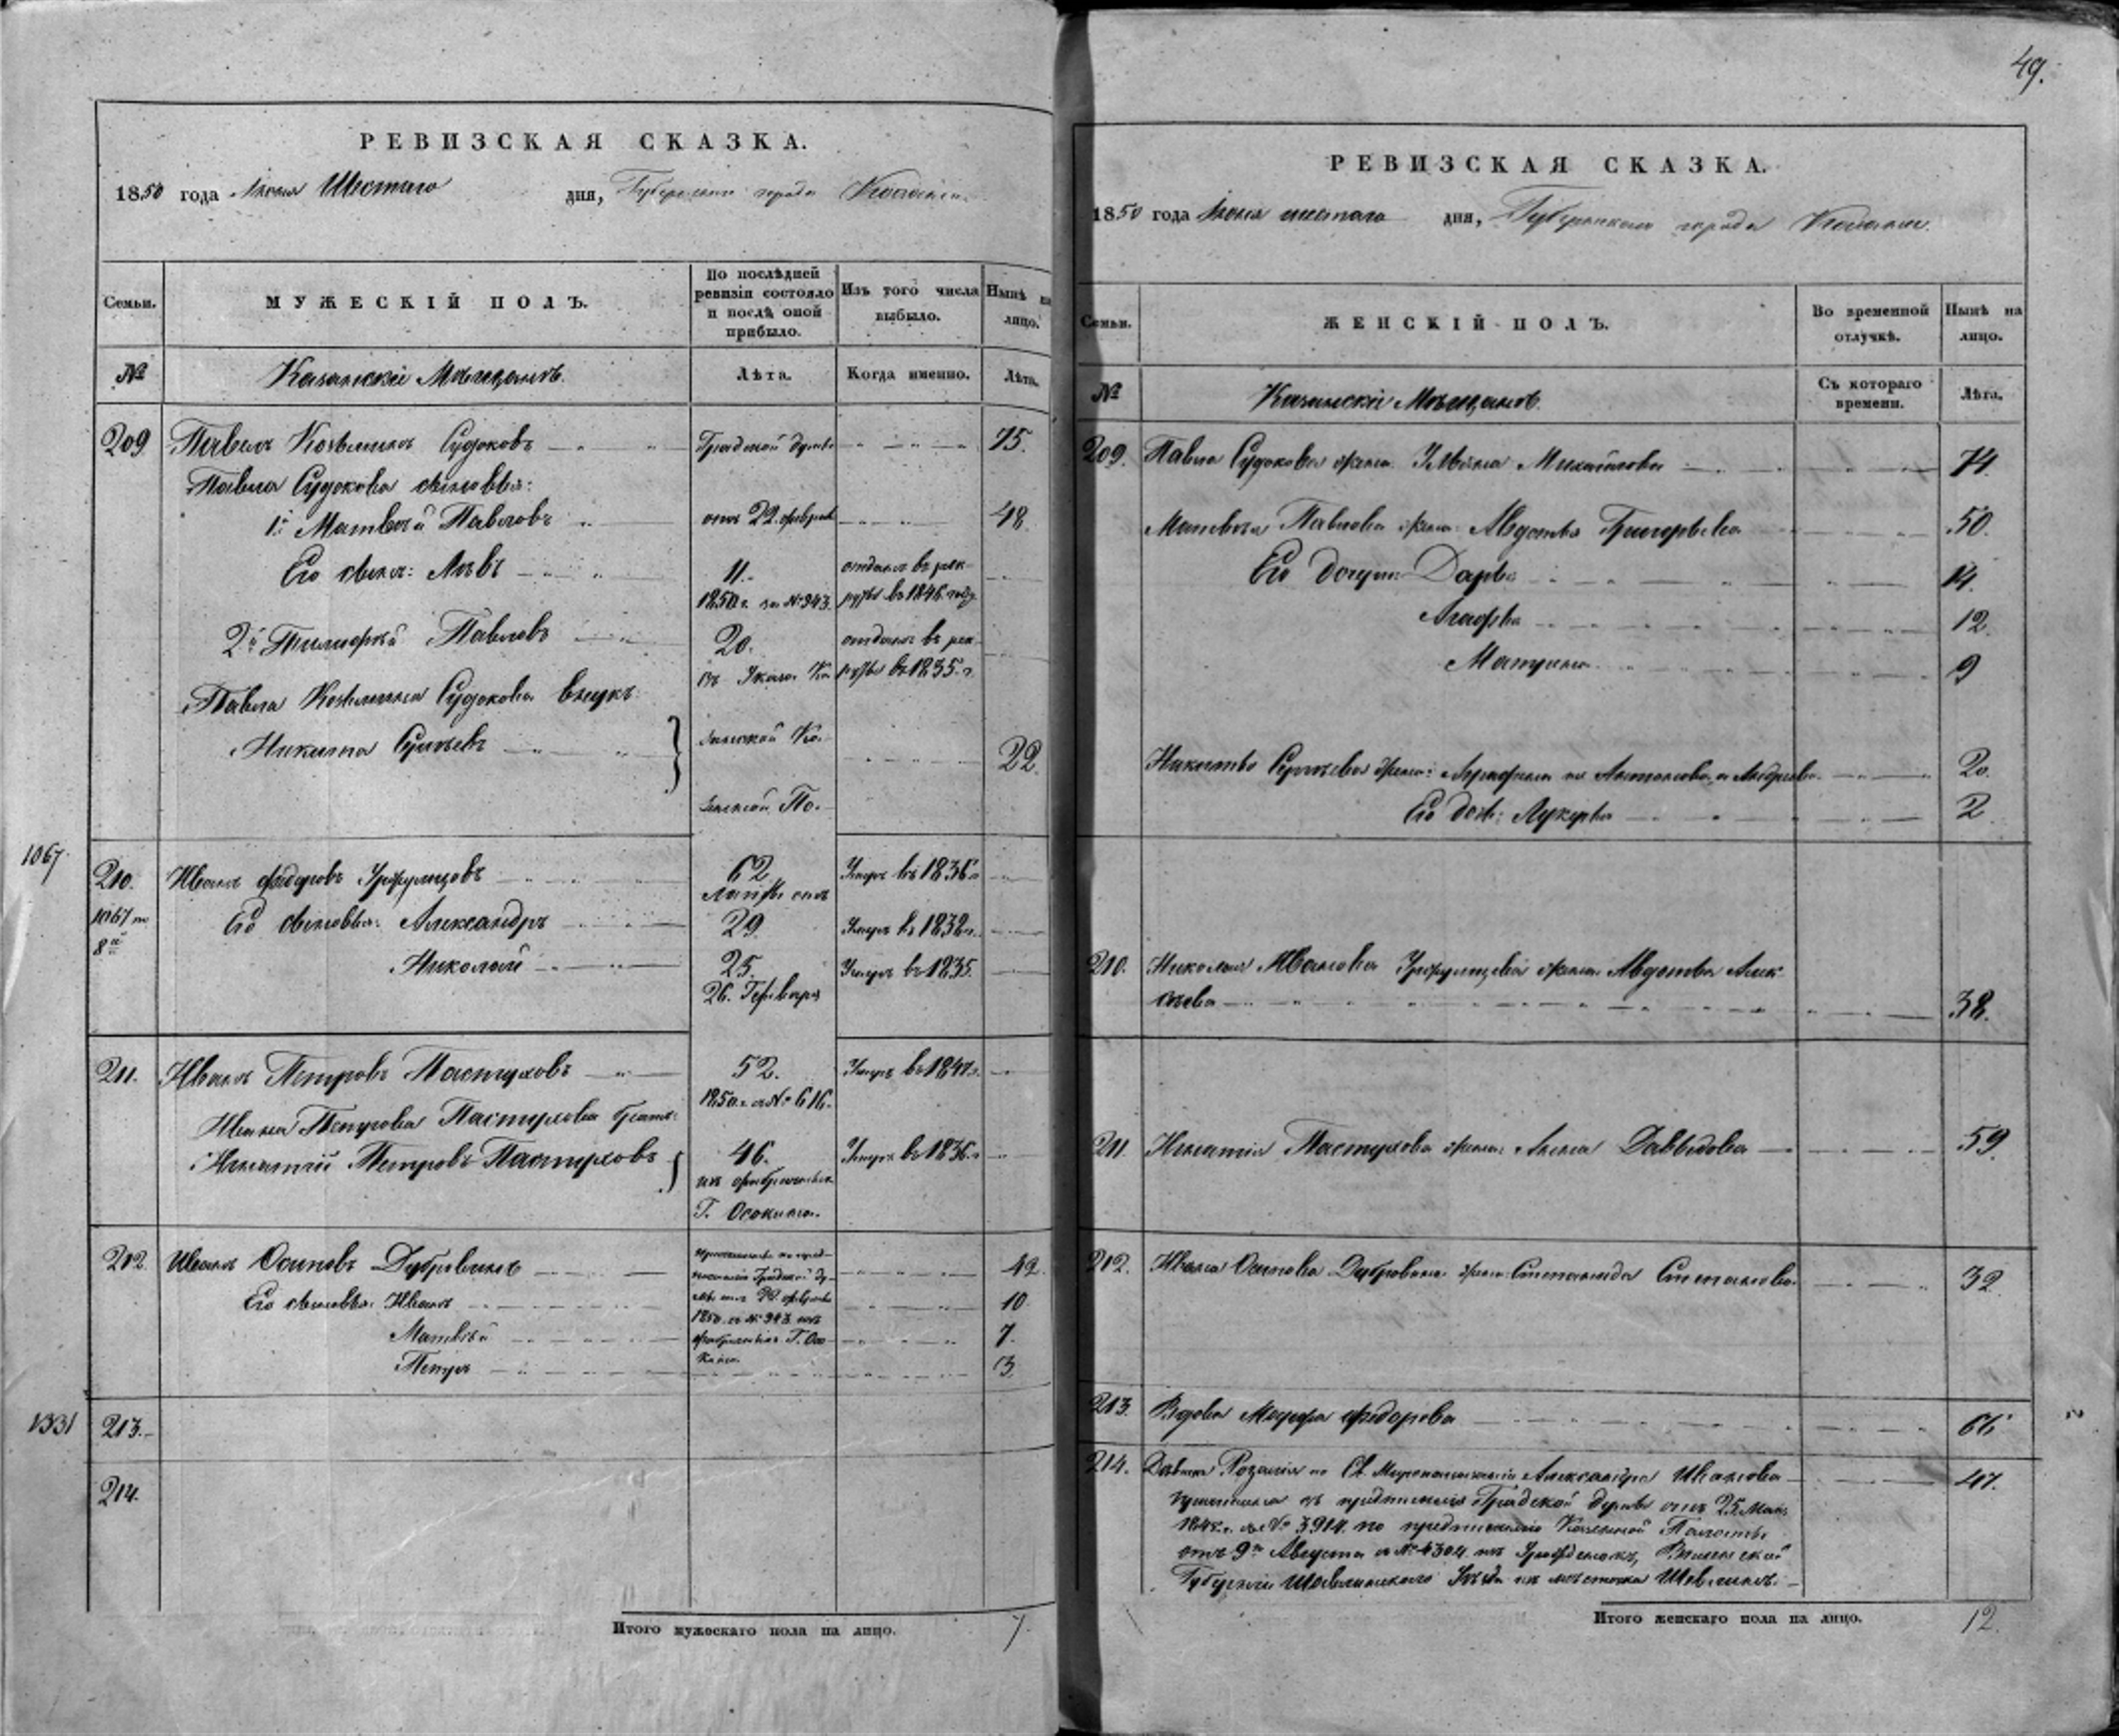 49.
РЕВИЗСКАЯ СКАЗКА.
1850 года Июня Шестаго дня, Губернскаго города Казани
Семьи. МУЖЕСКІЙ ПОЛЪ. По послѣдней ревизіи состояло и послѣ оной прибыло. Изъ того числа выбыло. Нынѣ на лицо.
№ Казанскіе Мѣщане Лѣта. Когда именно. Лѣта.
209 Павелъ Козьминъ Судоковъ Градской думы 75.
Павла Судокова сыновья:
1й Матвей Павловъ отъ 22 февраля 48
Его сынъ: Левъ 11. отданъ въ рек-
1850 г. за № 943. руты въ 1846 году
2й Тимофей Павловъ 20. отданъ въ рек-
Указа Ка руты въ 1835 г.
Павла Козьмина Судокова внукъ
Никита Сергѣевъ занской Ка- 22.
зенной Па-
1067
210. Иванъ Федоровъ 62 Умеръ въ 1836 г.
латы отъ
1067 по 8й Его сыновья: Александръ 29 Умеръ въ 1838 г.
Николай 25. Умеръ въ 1835.
26. Генваря
211. Иванъ Петровъ Пастуховъ 52. Умеръ въ 1847 г.
1850 г. за № 616.
Ивана Петрова Пастухова братъ
Игнатій Петровъ Пастуховъ 46. Умеръ въ 1836 г.
изъ фабричныхъ
Г. Осокина.
212 Иванъ Осиповъ Дубровинъ 42.
Его сыновья: Иванъ 10
Матвѣй 7.
Петръ 3
Градской Ду-
мы отъ 22 февраля
1850 за № 943 изъ
фабричныхъ Г. Осо-
кина.
1331 213.
214.
Итого мужескаго пола на лицо. 7.
РЕВИЗСКАЯ СКАЗКА.
1850 года Июня шестаго дня, Губернскаго города Казани.
Семьи. ЖЕНСКІЙ ПОЛЪ. Во временной отлучкѣ. Нынѣ на лицо.
№ Казанскіе Мѣщане Съ котораго времени. Лѣта.
209. Павла Судокова жена Михайлова 74.
Матвѣя Павлова жена: Авдотья Григорьева 50.
Его дочери: Дарья 14.
Агафья 12.
Матрена 9
Никиты Сергѣева жена: Андреева 20.
Его дочь: Лукерья 2
210. Николая Иванова жена Авдотья Алек-
сѣева 38.
211. Игнатія Пастухова жена: Анна Давыдова 59.
212. Ивана Осипова Дубровина жена: Степанида Степанова 32
213. Вдова Федорова 66
214. Девица Розалія по Св. Миропомазаніи Александра Иванова 47.
предписанія Градской думы отъ 25 Мая
за № 3914. по предписанію Казенной Палаты
отъ 9го Августа за № 4304 изъ Виленской
Губерніи Шавлинскаго Уѣзда изъ мѣстечка
Итого женскаго пола на лицо. 12.